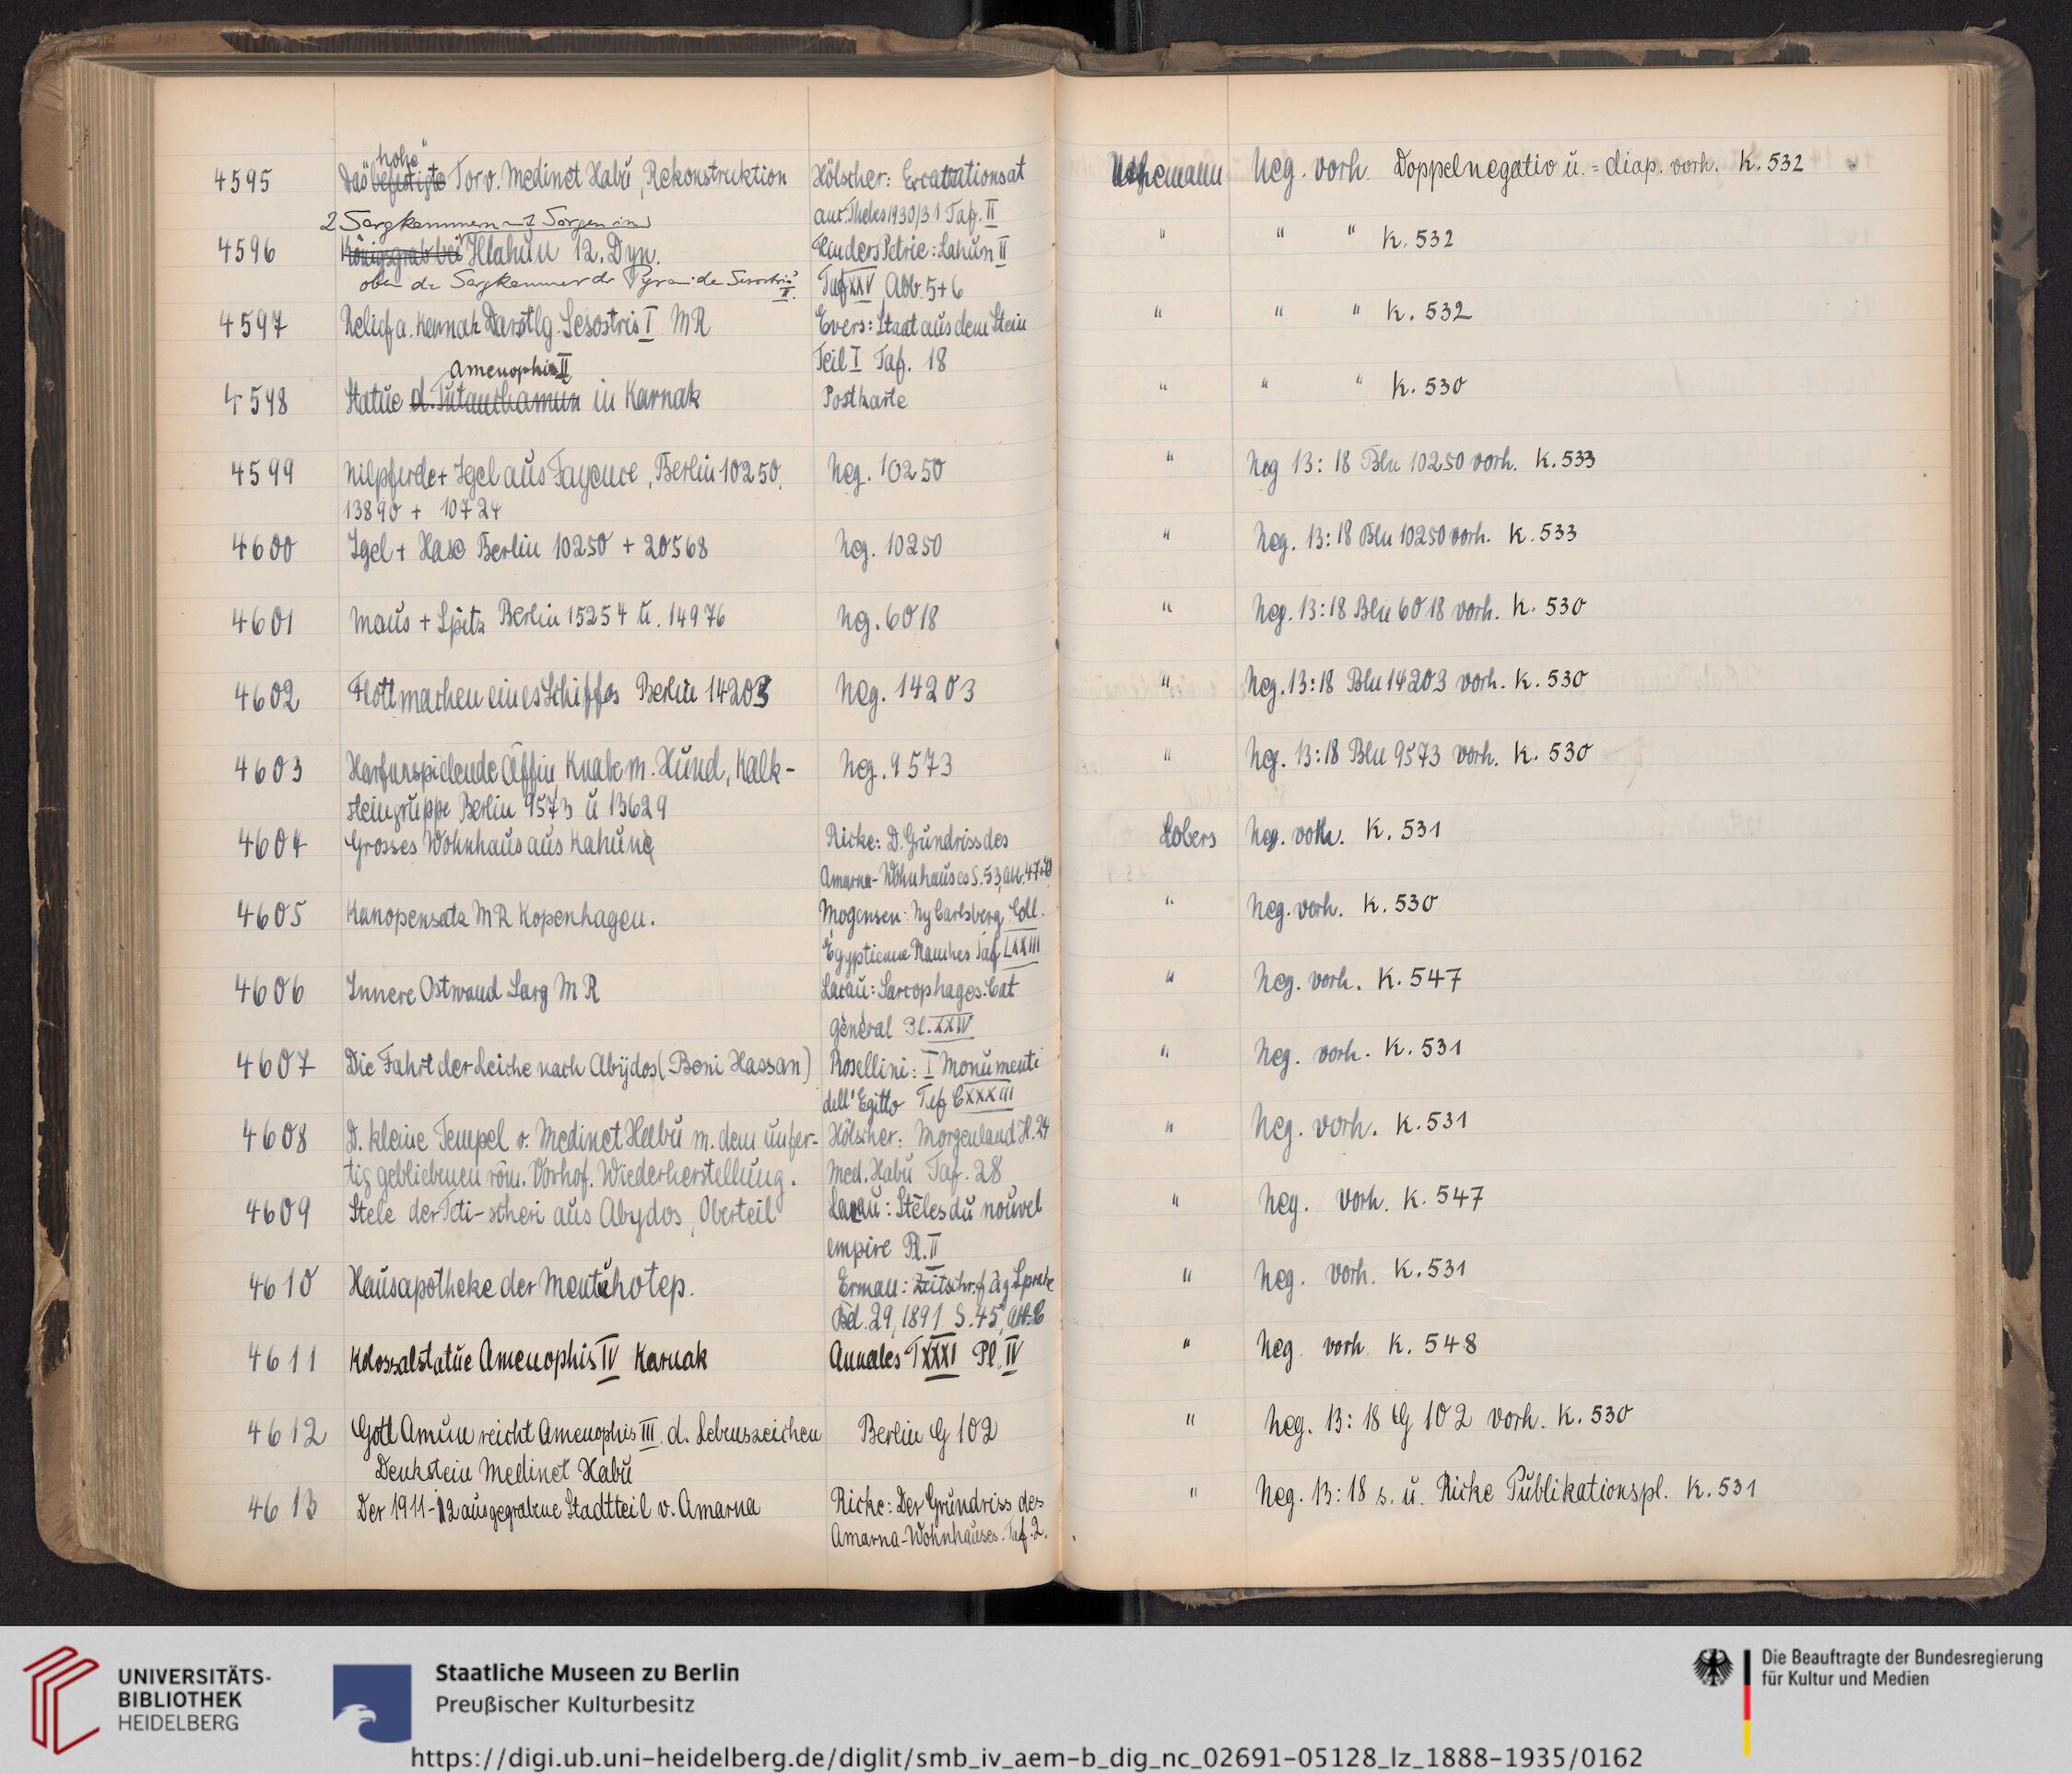 "hohe"
4595 Das befestigte Tor v. Medinet Habu, Rekonstruktion Hölscher: Excavations at Uthemann Neg. vorh. Doppelnegativ u. = diap. vorh. K. 532
anc. Thebes 1930/31 Taf. II
2 Sargkammern
4596 Königsgrab bei Illahun 12. Dyn. Flinders Petrie: Lahun II " " " K. 532
oben die Sargkammer der Pyramide Sesostris' II. Taf XXV Abb. 5+6
4597 Relief a. Karnak Darstlg. Sesostris I MR Evers: Staat aus dem Stein " " " K. 532
Teil I Taf. 18
Amenophis II
4598 Statue d. Tutanchamun in Karnak Postkarte " " " K. 530
4599 Nilpferde + Igel aus Fayence, Berlin 10250, Neg. 10250 " Neg 13:18 Bln 10250 vorh. K. 533
13890 + 10724
4600 Igel + Hase Berlin 10250 + 20568 Neg. 10250 " Neg. 13:18 Bln 10250 vorh. K. 533
4601 Maus + Spitz Berlin 15254 u. 14976 Neg. 6018 " Neg. 13:18 Bln 6018 vorh. K. 530
4602 Flottmachen eines Schiffes Berlin 14203 Neg. 14203 " Neg. 13:18 Bln 14203 vorh. K. 530
4603 Harfenspielende Äffin, Knabe m. Hund, Kalk- Neg. 9573 " Neg. 13:18 Bln 9573 vorh. K. 530
steingruppe Berlin 9573 u 13629
4604 Grosses Wohnhaus aus Kahun Ricke: D. Grundriss des Lobers Neg. vorh. K. 531
Amarna-Wohnhauses S. 53, Abb.
4605 Kanopensatz MR Kopenhagen. Mogensen: Ny Carlsberg Coll. " Neg. vorh. K. 530
Egyptienne Planches Taf LXXIII
4606 Innere Ostwand Sarg MR Lacau: Sarcophages. Cat " Neg. vorh. K. 547
général Pl. XXIV
4607 Die Fahrt der Leiche nach Abydos (Beni Hassan) Rosellini: I Monumenti " Neg. vorh. K. 531
dell' Egitto Taf CXXXIII
4608 D. kleine Tempel v. Medinet Habu m. dem unfer- Hölscher: Morgenland H. 24 " Neg. vorh. K. 531
tig gebliebenen röm. Vorhof. Wiederherstellung. Med. Habu Taf. 28
4609 Stele der Teti-scheri aus Abydos, Oberteil Lacau: Stèles du nouvel " Neg. vorh. K. 547
empire Pl. II
4610 Hausapotheke der Mentuhotep. Erman: Zeitschr. f äg Sprache " Neg. vorh. K. 531
Bd. 29, 1891 S. 45, Abb. C
4611 Kolossalstatue Amenophis IV Karnak Annales T XXXI Pl. IV " Neg. vorh. K. 548
4612 Gott Amun reicht Amenophis III. d. Lebenszeichen Berlin G 102 " Neg. 13:18 G 102 vorh. K. 530
Denkstein Medinet Habu
4613 Der 1911-12 ausgegrabene Stadtteil v. Amarna Ricke: Der Grundriss des " Neg. 13:18 s. u. Ricke Publikationspl. K. 531
Amarna-Wohnhauses. Taf. 2.
UNIVERSITÄTS-
BIBLIOTHEK
HEIDELBERG
Staatliche Museen zu Berlin
Preußischer Kulturbesitz
Die Beauftragte der Bundesregierung
für Kultur und Medien
https://digi.ub.uni-heidelberg.de/diglit/smb_iv_aem-b_dig_nc_02691-05128_lz_1888-1935/0162